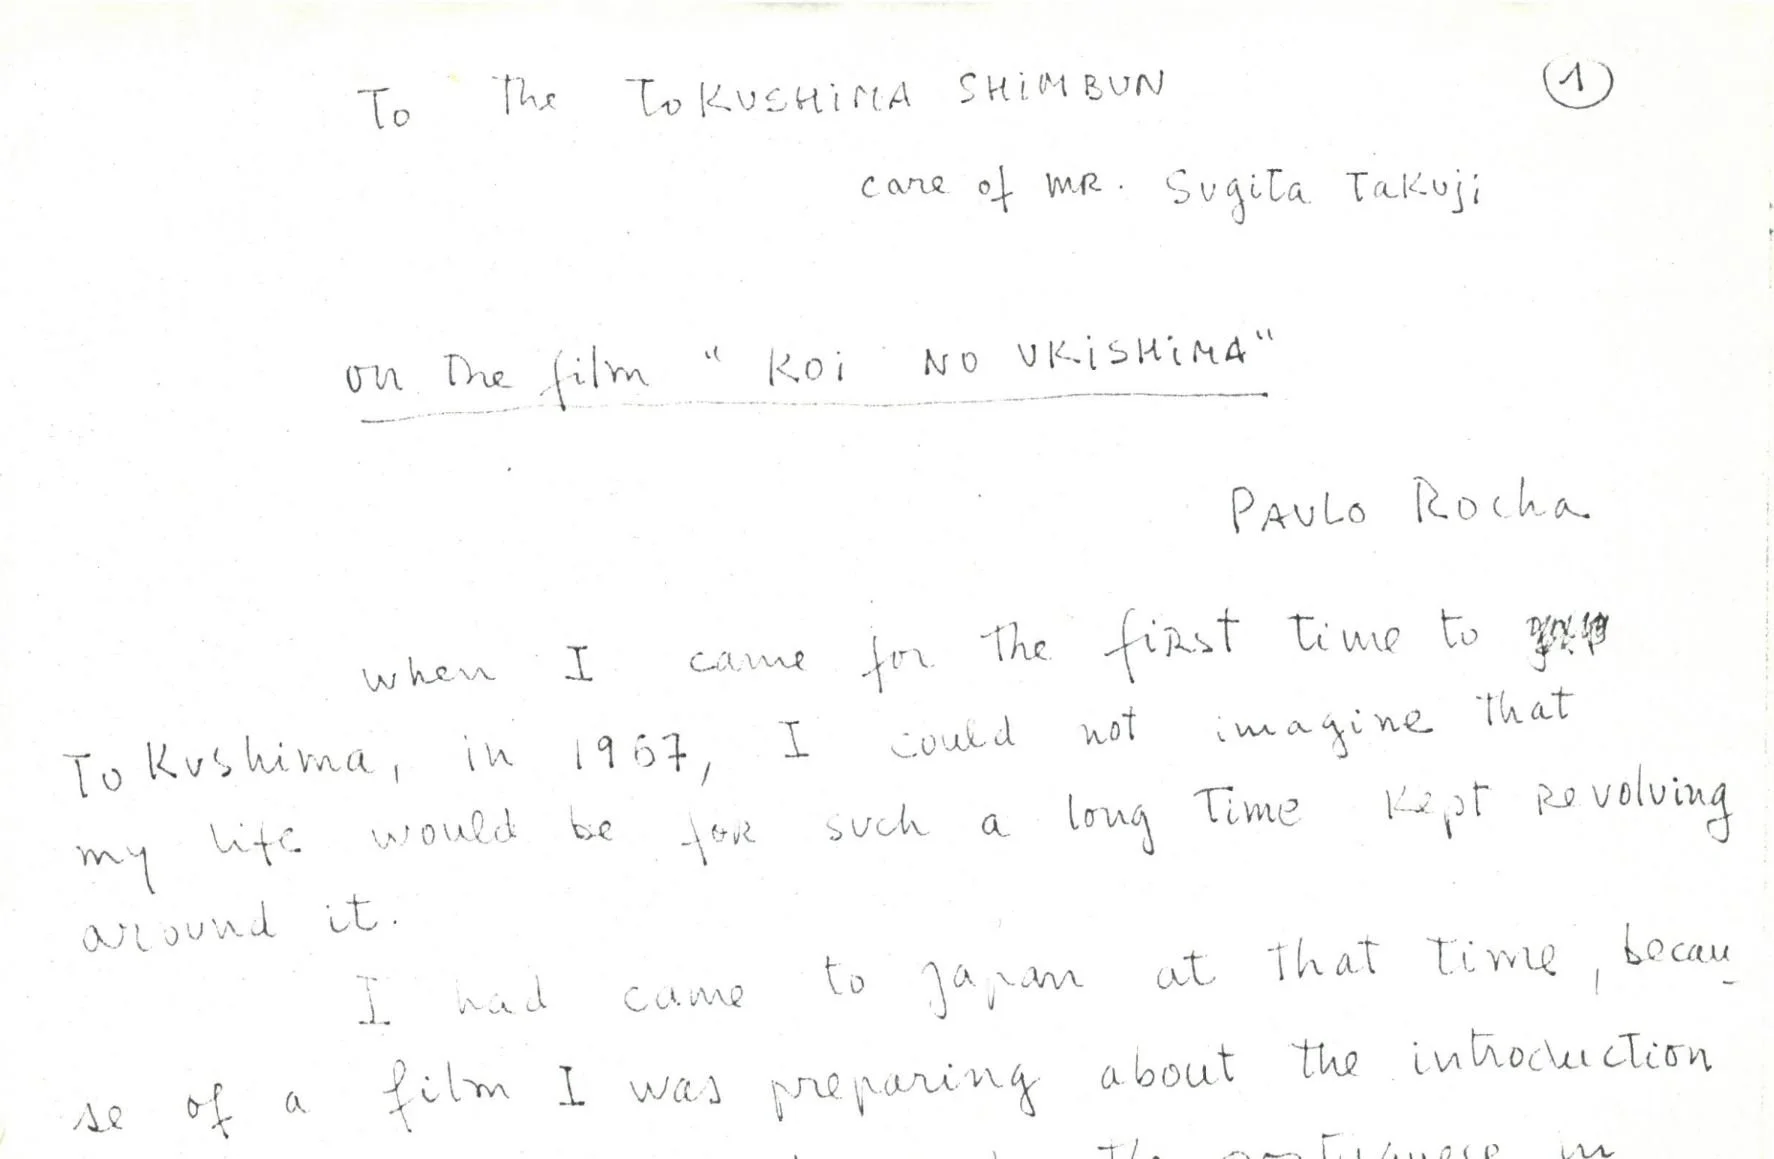 ①
To the TOKUSHIMA SHIMBUN
care of MR. Sugita Takuji
on the film " KOI NO UKISHIMA"
PAULO Rocha
when I came for the first time to
Tokushima, in 1967, I could not imagine that
my life would be for such a long time kept revolving
around it.
I had came to Japan at that time, becau-
se of a film I was preparing about the introduction
the portuguese in